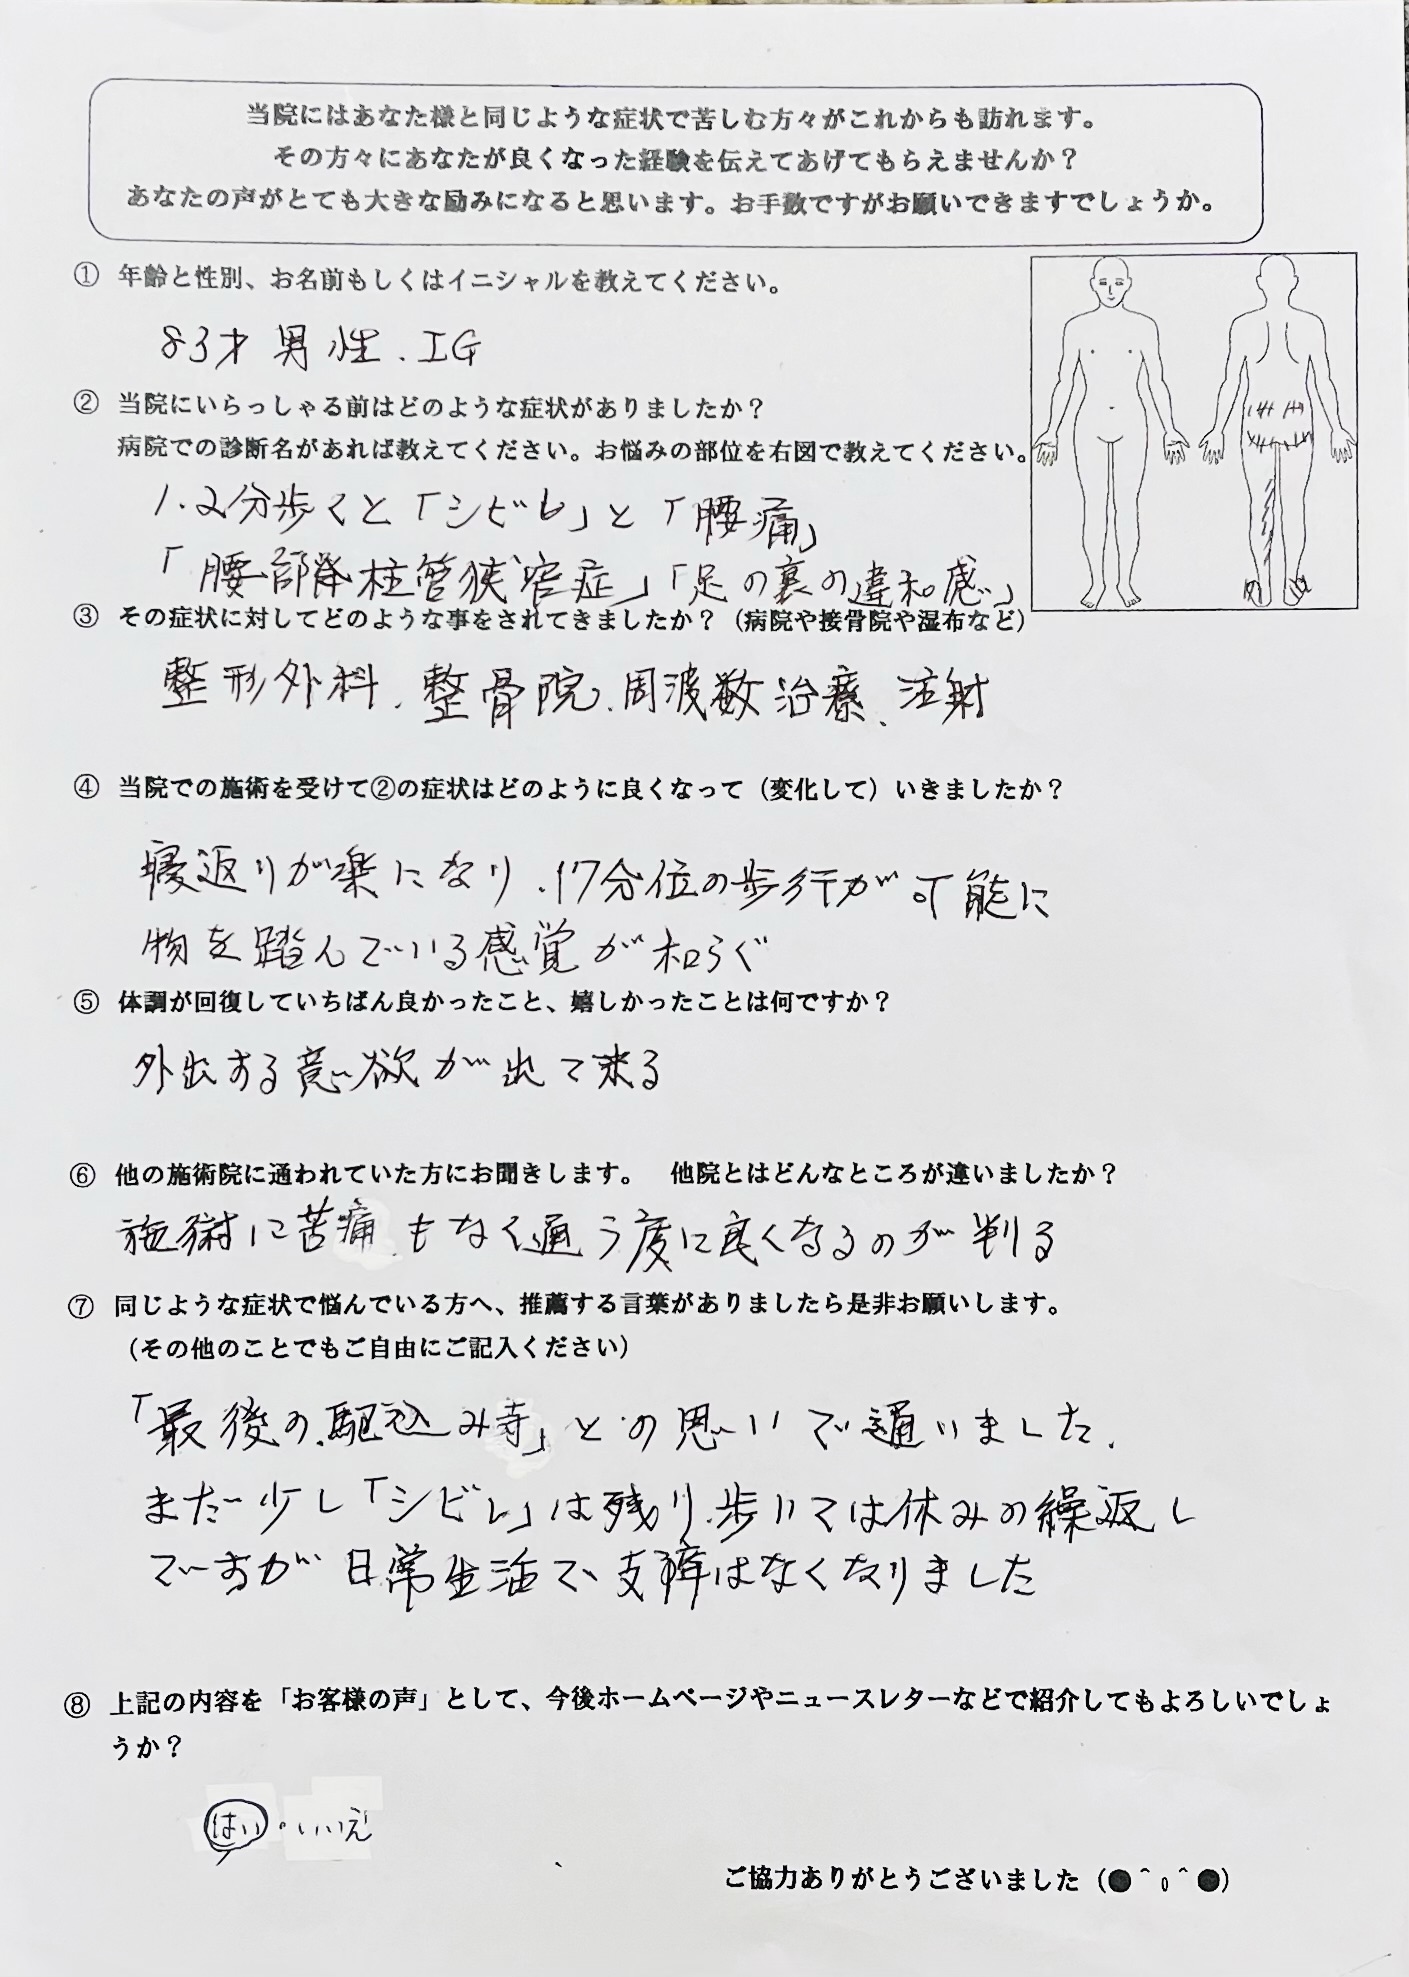 当院にはあなた様と同じような症状で苦しむ方々がこれからも訪れます。
その方々にあなたが良くなった経験を伝えてあげてもらえませんか？
あなたの声がとても大きな励みになると思います。お手数ですがお願いできますでしょうか。
① 年齢と性別、お名前もしくはイニシャルを教えてください。
83才 男性、IG
② 当院にいらっしゃる前はどのような症状がありましたか？
病院での診断名があれば教えてください。お悩みの部位を右図で教えてください。
1.2分歩くと「シビレ」と「腰痛」
「腰部脊柱管狭窄症」「足の裏の違和感」
③ その症状に対してどのような事をされてきましたか？（病院や接骨院や湿布など）
整形外科、整骨院、周波数治療、注射
④ 当院での施術を受けて②の症状はどのように良くなって（変化して）いきましたか？
寝返りが楽になり、17分位の歩行が可能に
物を踏んでいる感覚が和らぐ
⑤ 体調が回復していちばん良かったこと、嬉しかったことは何ですか？
外出する意欲が出て来る
⑥ 他の施術院に通われていた方にお聞きします。　他院とはどんなところが違いましたか？
施術に苦痛もなく通う度に良くなるのが判る
⑦ 同じような症状で悩んでいる方へ、推薦する言葉がありましたら是非お願いします。
（その他のことでもご自由にご記入ください）
「最後の駆込み寺」との思いで通いました、
まだ少し「シビレ」は残り、歩いては休みの繰返し
ですが日常生活で支障はなくなりました
⑧ 上記の内容を「お客様の声」として、今後ホームページやニュースレターなどで紹介してもよろしいでしょ
うか？
はい・いいえ
ご協力ありがとうございました（●＾o＾●）